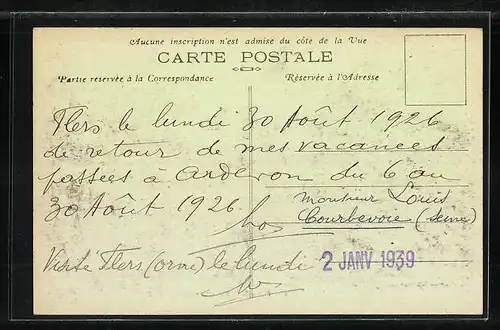 Aucune inscription n'est admise du côté de la Vue
CARTE POSTALE
Partie reservée à la Correspondance
Réservée à l'Adresse
Flers le lundi 30 Août 1926
de retour de mes vacances
passées à Ardevon du 6 au
30 Août 1926
Monsieur Louis
Courbevoie (Seine)
Flers (orne) le lundi
2 JANV 1939